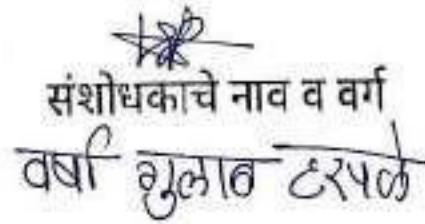 संशोधकाचे नाव व वर्ग
वर्षा गुलाब टरपले